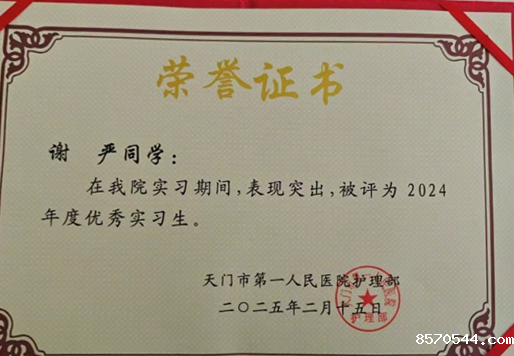 荣誉证书
谢 严同学：
在我院实习期间，表现突出，被评为 2024
年度优秀实习生。
天门市第一人民医院护理部
二〇二五年二月十五日
护理部
8570544.com